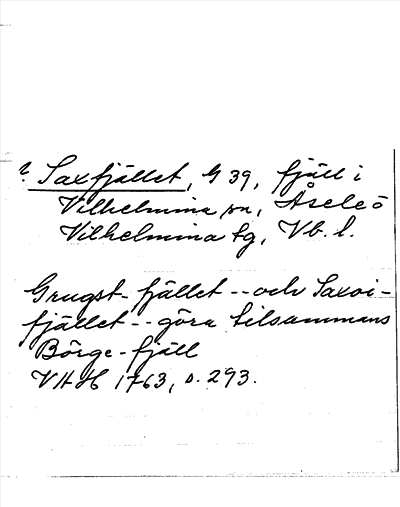 ? Saxfjället, G 39, fjäll i
Vilhelmina sn, Åsele ö
Vilhelmina tg, Vb. l.
Grugst- fjället -- och Saxoi-
fjället -- göra tilsammans
Börge-fjäll
VAH 1763, s. 293.